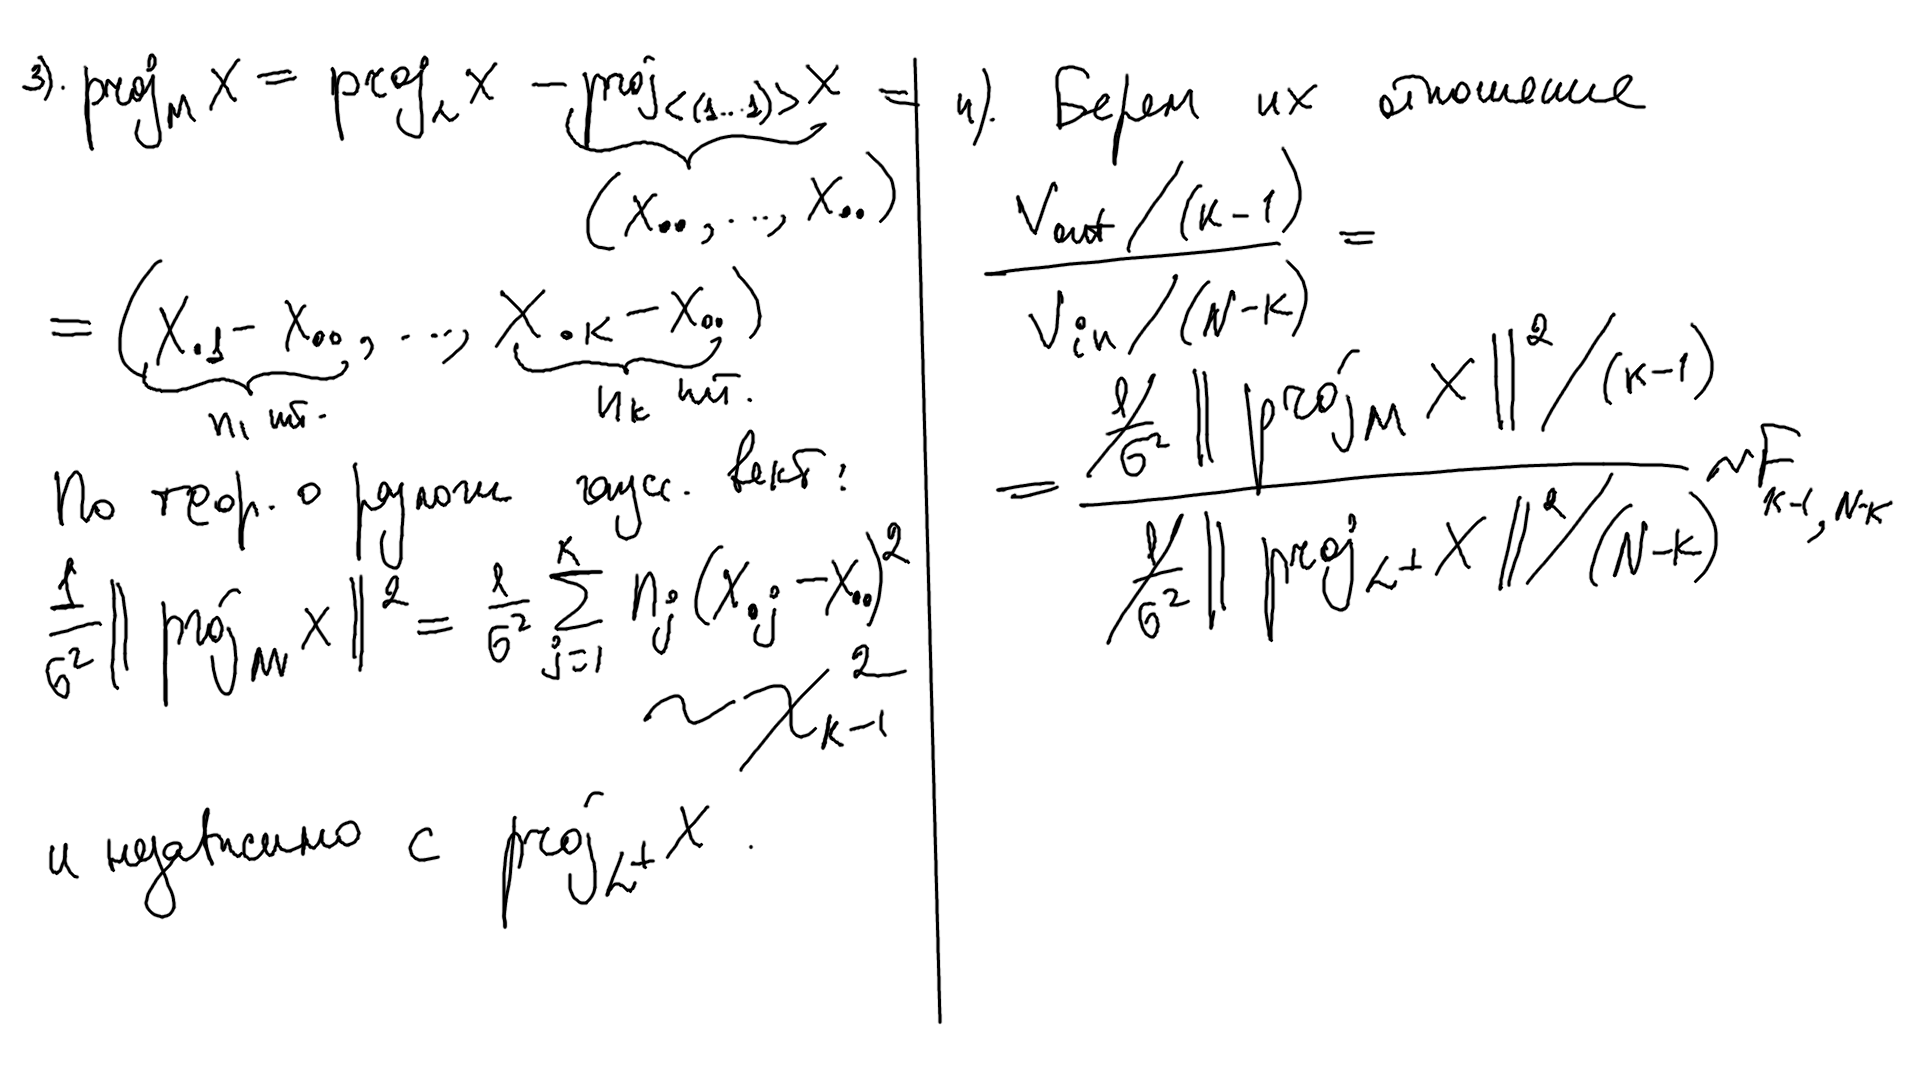 3). proj_M X = proj_L X − proj_{<(1...1)>} X =
(X_{••}, ..., X_{••})
= (X_{•1} − X_{••}, ..., X_{•K} − X_{••})
n_1 шт. n_K шт.
По теор. о разлож гаусс. вект:
1/σ² || proj_M X ||² = 1/σ² ∑_{j=1}^{K} n_j (X_{•j} − X_{••})²
~ χ²_{K−1}
и независимо с proj_{L^⊥} X .
4). Берем их отношение
V_{out} / (K−1)
V_{in} / (N−K)
=
= 1/σ² || proj_M X ||² / (K−1)
1/σ² || proj_{L^⊥} X ||² / (N−K)
~ F_{K−1, N−K}